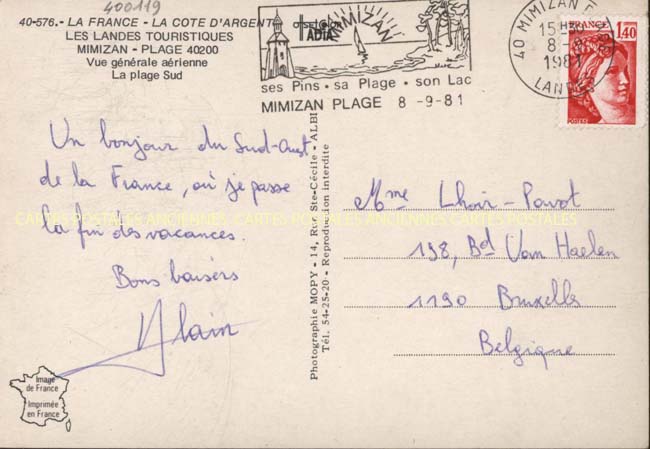 400119
40-576.- LA FRANCE - LA COTE D'ARGENT
LES LANDES TOURISTIQUES
MIMIZAN - PLAGE 40200
Vue générale aérienne
La plage Sud
MIMIZAN
ses Pins • sa Plage • son Lac
MIMIZAN PLAGE 8 -9-81
40 MIMIZAN
15H30
8-9
1981
LANDES
FRANCE
1,40
POSTES
Un bonjour du Sud-Ouest
de la France, où je passe
la fin des vacances.
Bons baisers
Alain
Photographie MOPY - 14, Rue Ste-Cécile - ALBI
Tél. 54-25-20 - Reproduction interdite
Mme Lhoir-Pavot
198, Bd Van Haelen
1190 Bruxelles
Belgique
CARTES POSTALES ANCIENNES CARTES POSTALES ANCIENNES CARTES POSTALES
Image
de France
Imprimée
en France